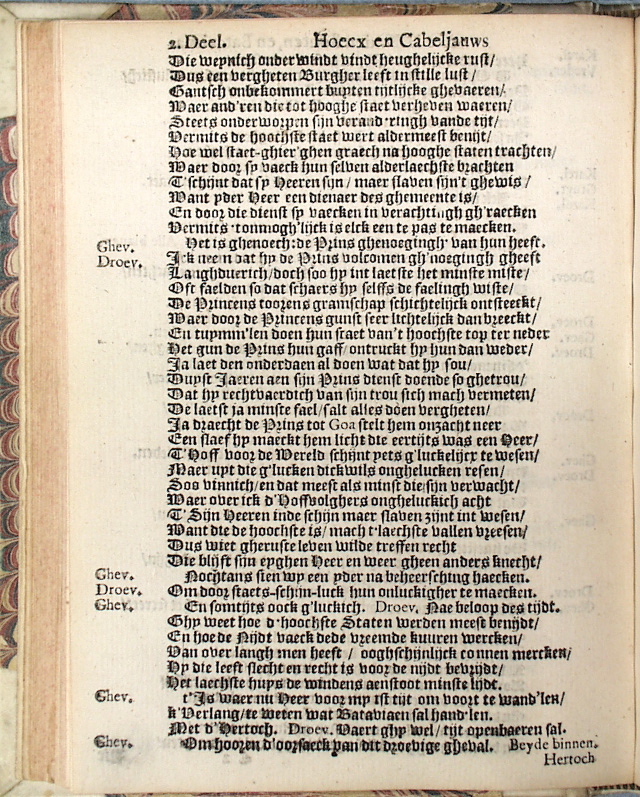 2. Deel. Hoecx en Cabeljauws
Die weynich onderwindt vindt heughelijcke rust/
Dus een vergheten Burgher leeft in stille lust/
Gantsch onbekommert buyten tijtlijcke ghevaeren/
Waer and'ren die tot hooghe staet verheven waeren/
Steets onderworpen sijn verand'ringh vande tijt/
Vermits de hoochste staet wert aldermeest benijt/
Hoe wel staet-ghier'ghen graech na hooghe staten trachten/
Waer door sy vaeck hun selven alderlaechste brachten
T'schijnt dat sy Heeren sijn/ maer slaven sijn't ghewis/
Want yder Heer een dienaer des ghemeente is/
En door die dienst sy vaecken in verachtingh gh'raecken
Vermits 'tonmogh'lijck is elck een te pas te maecken.
Ghev. Het is ghenoech: de Prins ghenoegingh' van hun heeft.
Droev. Ick neem dat hy de Prins volcomen gh'noegingh gheeft
Langhduerich/ doch soo hy int laetste het minste miste/
Oft faelden so dat schaers hy selffs de faelingh wiste/
De Princens toorens gramschap schichtelijck ontsteeckt/
Waer door de Princens gunst seer lichtelijck dan breeckt/
En tuymm'len doen hun staet van't hoochste top ter neder
Het gun de Prins hun gaff/ ontruckt hy hun dan weder/
Ja laet den onderdaen al doen wat dat hy sou/
Duyst Jaeren aen sijn Prins dienst doende so ghetrou/
Dat hy rechtvaerdich van sijn trou sich mach vermeten/
De laetst ja minste fael/ salt alles doen vergheten/
Ja draecht de Prins tot Goa stelt hem onzacht neer
Een slaef hy maeckt hem licht die eertijts was een Heer/
T'Hoff voor de Wereld schijnt yets g'luckelijcx te wesen/
Maer uyt die g'lucken dickwils onghelucken resen/
Soo vinnich/ en dat meest als minst die sijn verwacht/
Waer over ick d'Hoffvolghers ongheluckich acht
T'Sijn Heeren inde schijn maer slaven zijnt int wesen/
Want die de hoochste is/ mach t'laechste vallen vreesen/
Dus wiet gheruste leven wilde treffen recht
Die blijft sijn eyghen Heer en weer gheen anders knecht/
Ghev. Nochtans sien wy een yder na beheersching haecken.
Droev. Om door staets-schijn-luck hun onluckigher te maecken.
Ghev. En somtijts oock g'luckich. Droev. Nae beloop des tijdt.
Ghy weet hoe d'hoochste Staten werden meest benijdt/
En hoe de Nijdt vaeck dede vreemde kuuren wercken/
Van over langh men heeft / ooghschijnlijck connen mercken/
Hy die leeft slecht en recht is voor de nijdt bevrijdt/
Het laechste huys de windens aenstoot minste lijdt.
Ghev. t'Is waer nu Heer voor my ist tijt om voort te wand'len/
k'Verlang/ te weten wat Bataviaen sal hand'len.
Met d'Hertoch. Droev. Vaert ghy wel/ tijt openbaeren sal.
Ghev. Om hooren d'oorsaeck van dit droevige gheval. Beyde binnen.
Hertoch